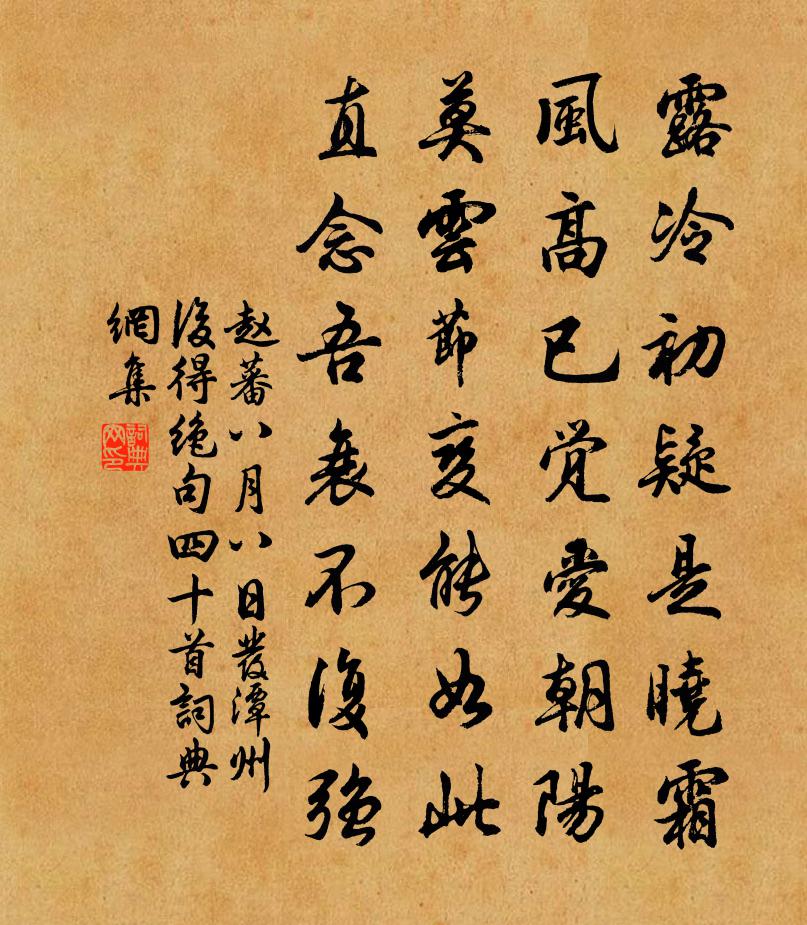 露冷初疑是曉霜
風高已覺愛朝陽
莫雲節変能如此
直念吾衰不復強
赵蕃八月八日發潭州
後得絶句四十首詞典
網集
詞典
网印